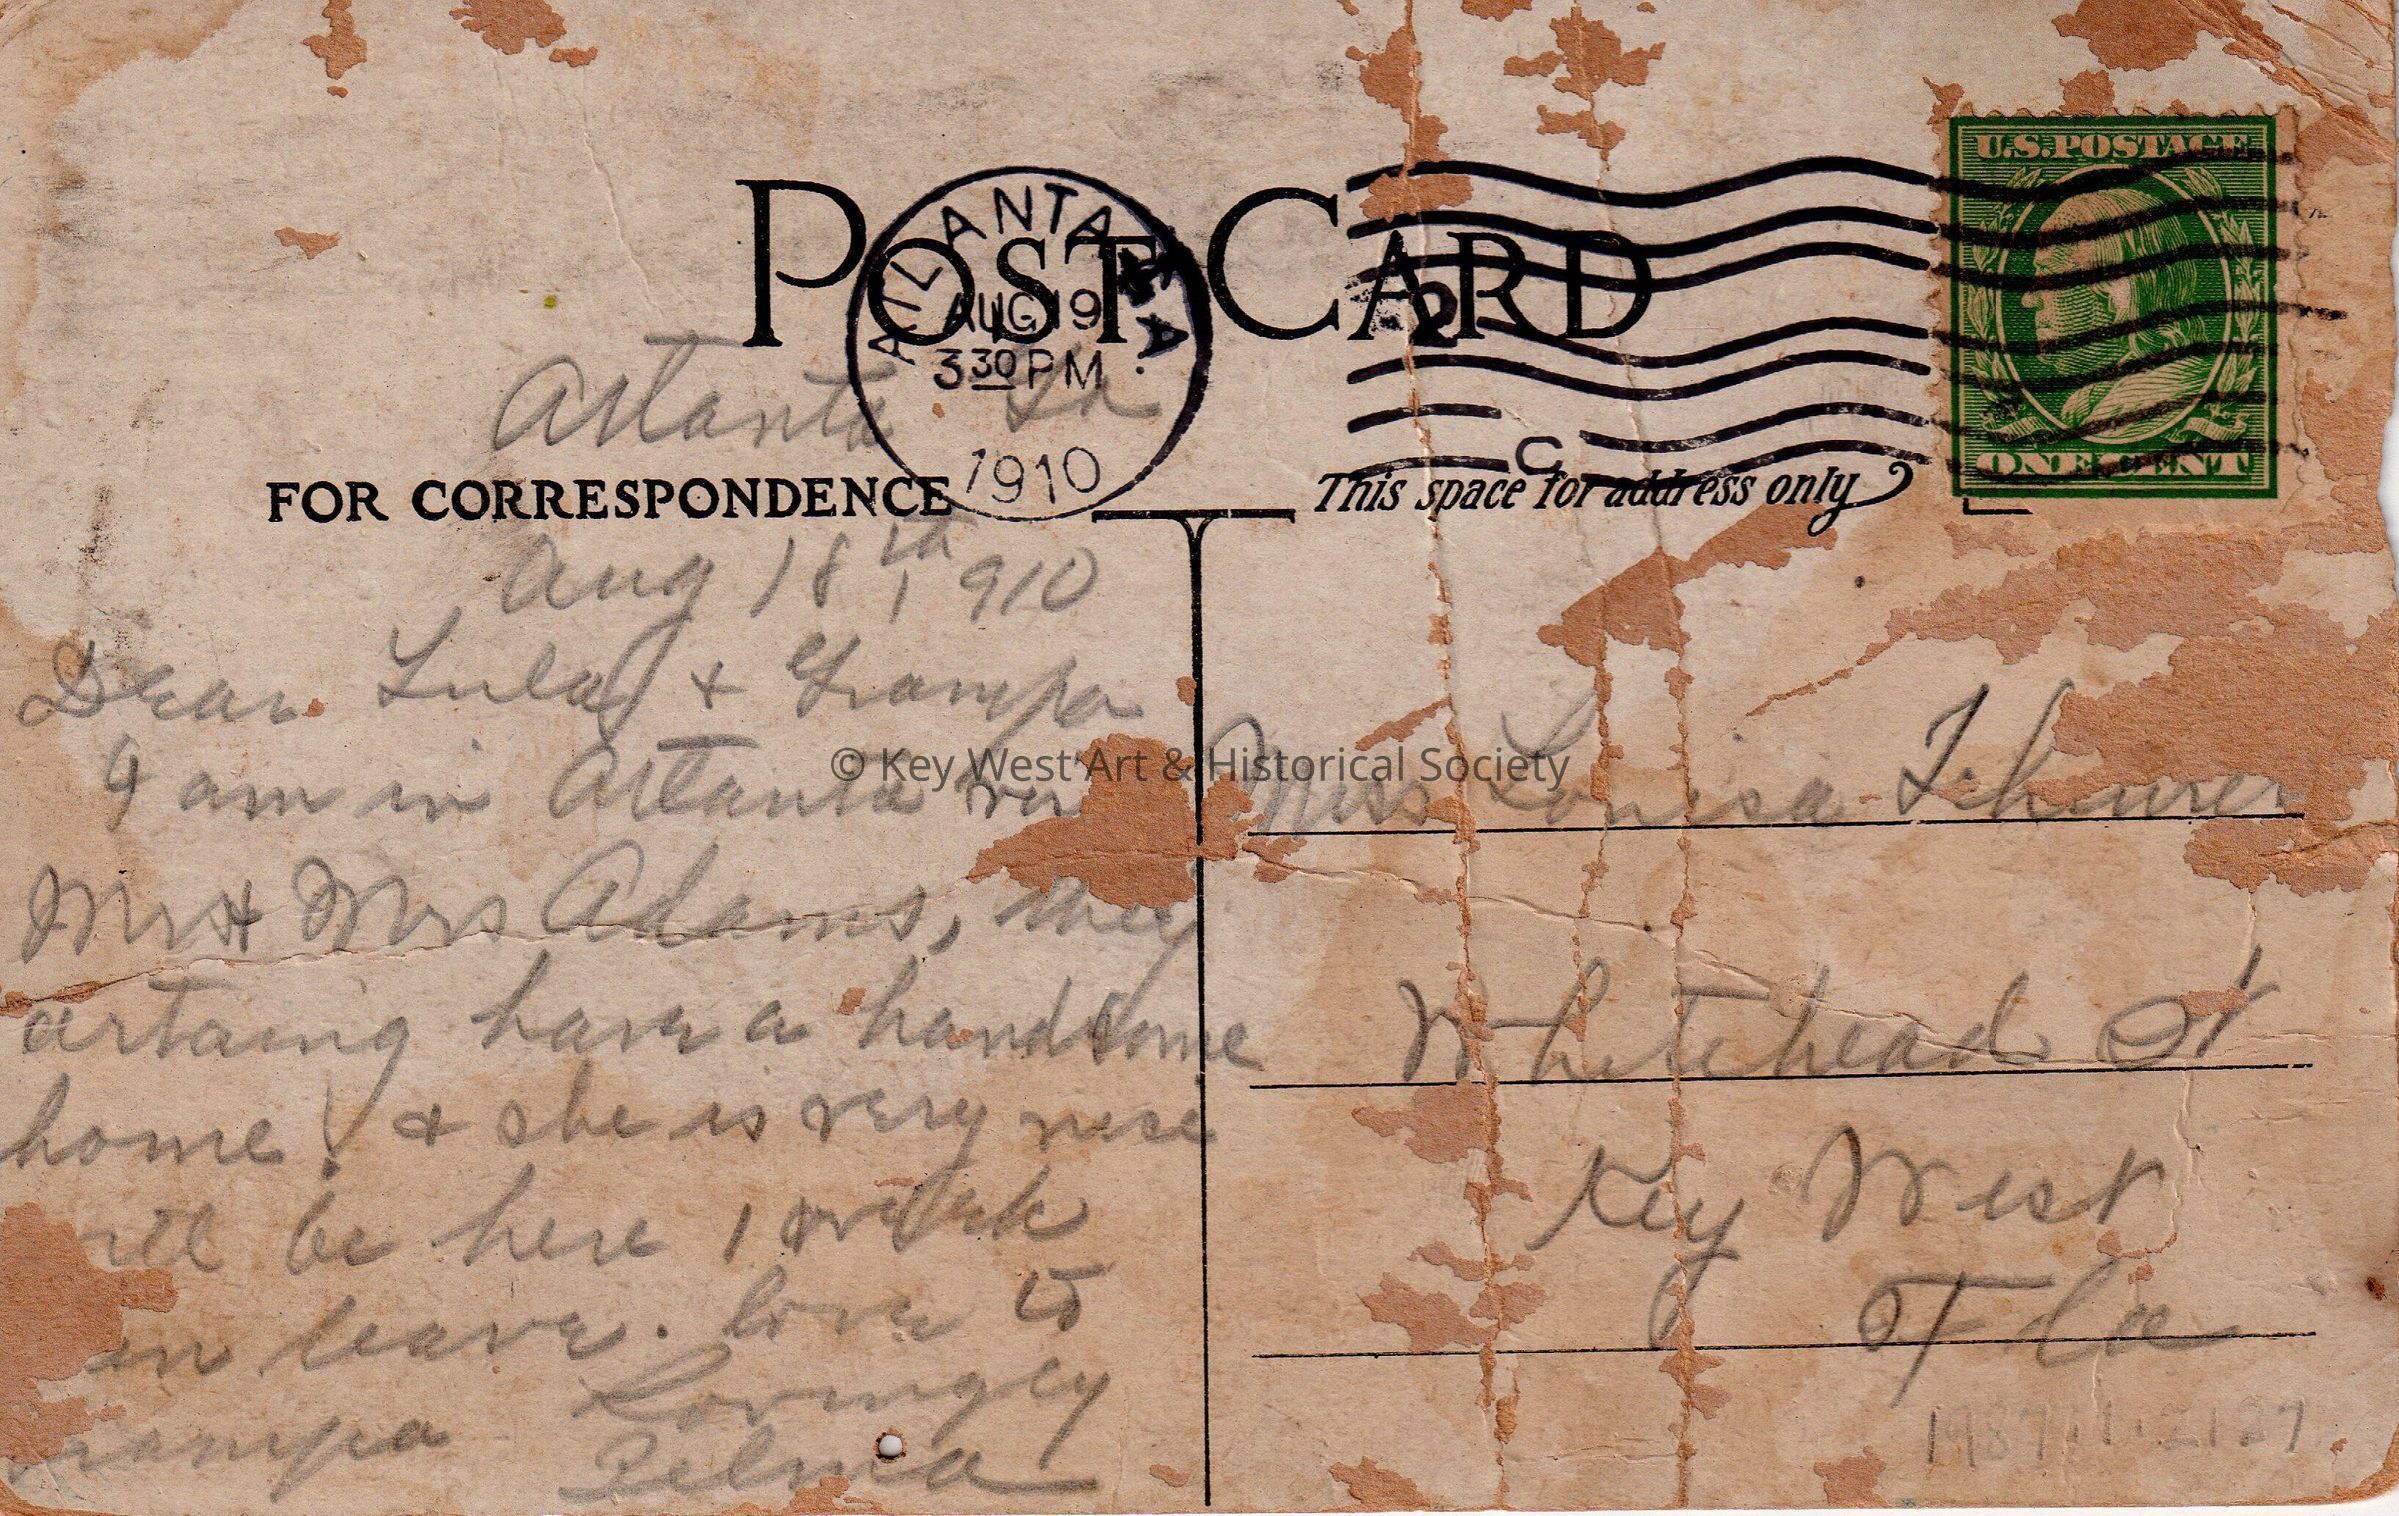 POST CARD
ATLANTA, GA.
AUG 19
3 30 PM
1910
U.S. POSTAGE
ONE CENT
C
Atlanta Ga
FOR CORRESPONDENCE
This space for address only
Aug 18th 1910
Dear Lula & Grampa
am in Atlanta
Mr & Mrs Adams, they
have a handsome
home! & she is very nise
will be here 1 week
leave. love to
Grampa Lovingly
Zelma
Miss Louisa
Whitehead St
Key West
Fla
© Key West Art & Historical Society